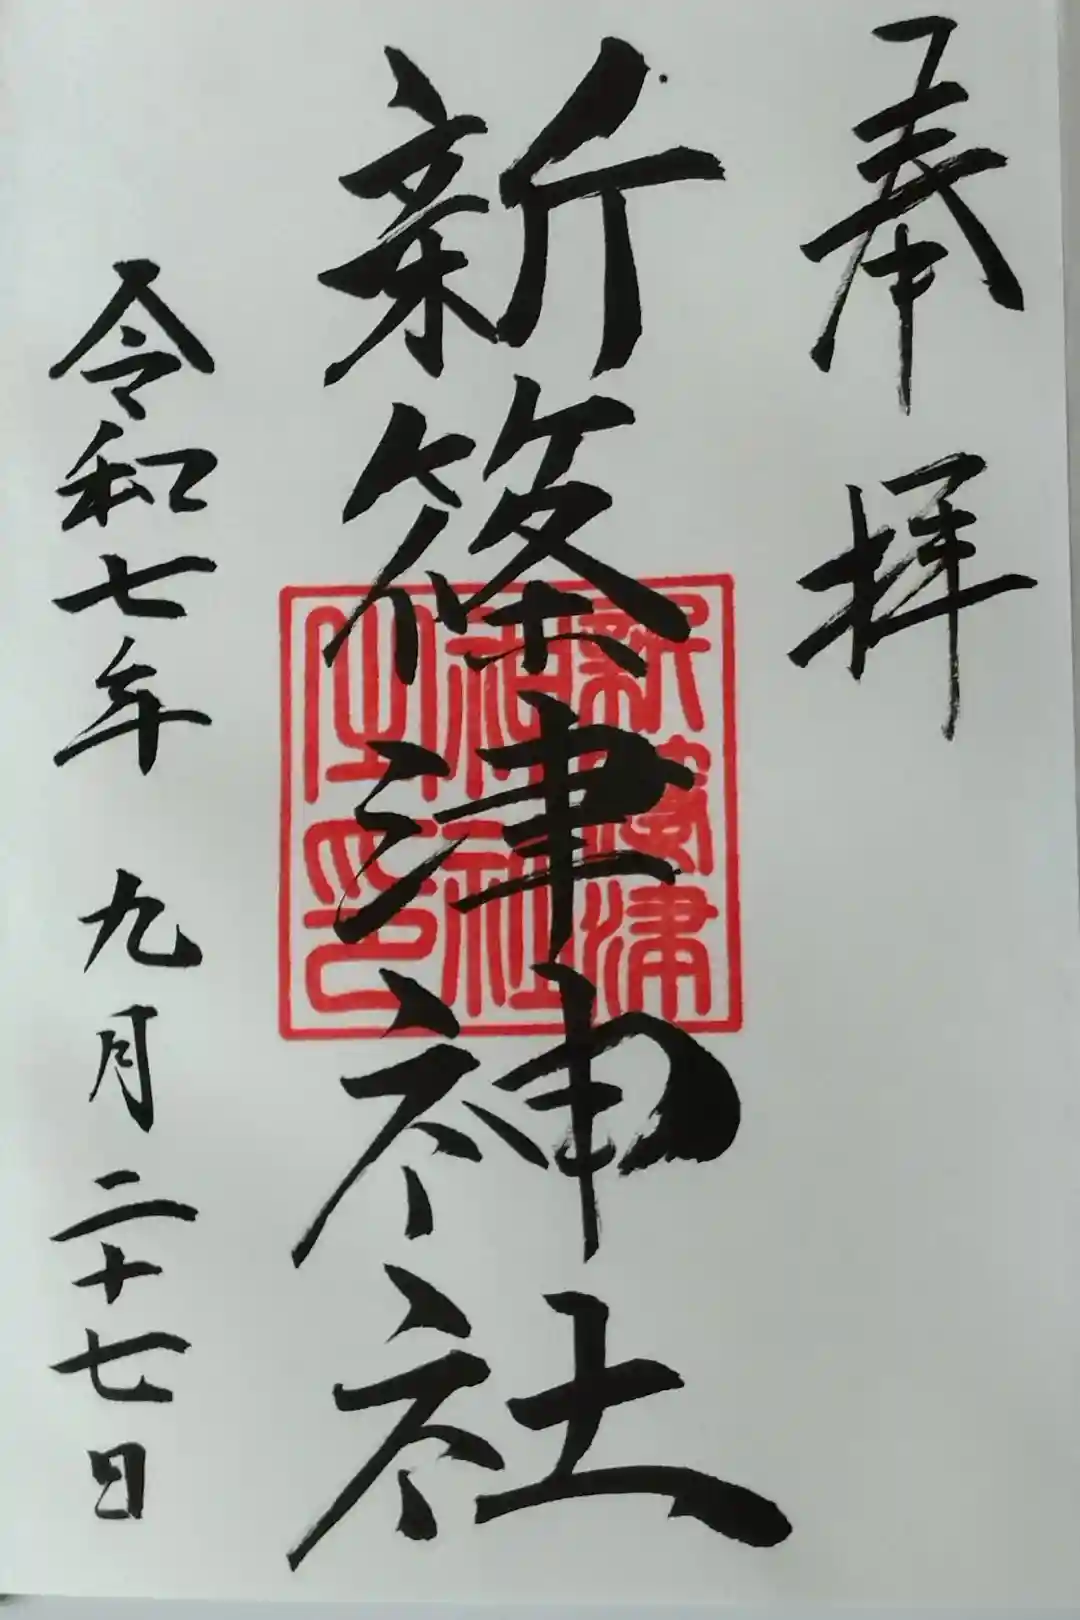 奉拝
新篠津神社
新篠津
神社
之印
令和七年 九月二十七日